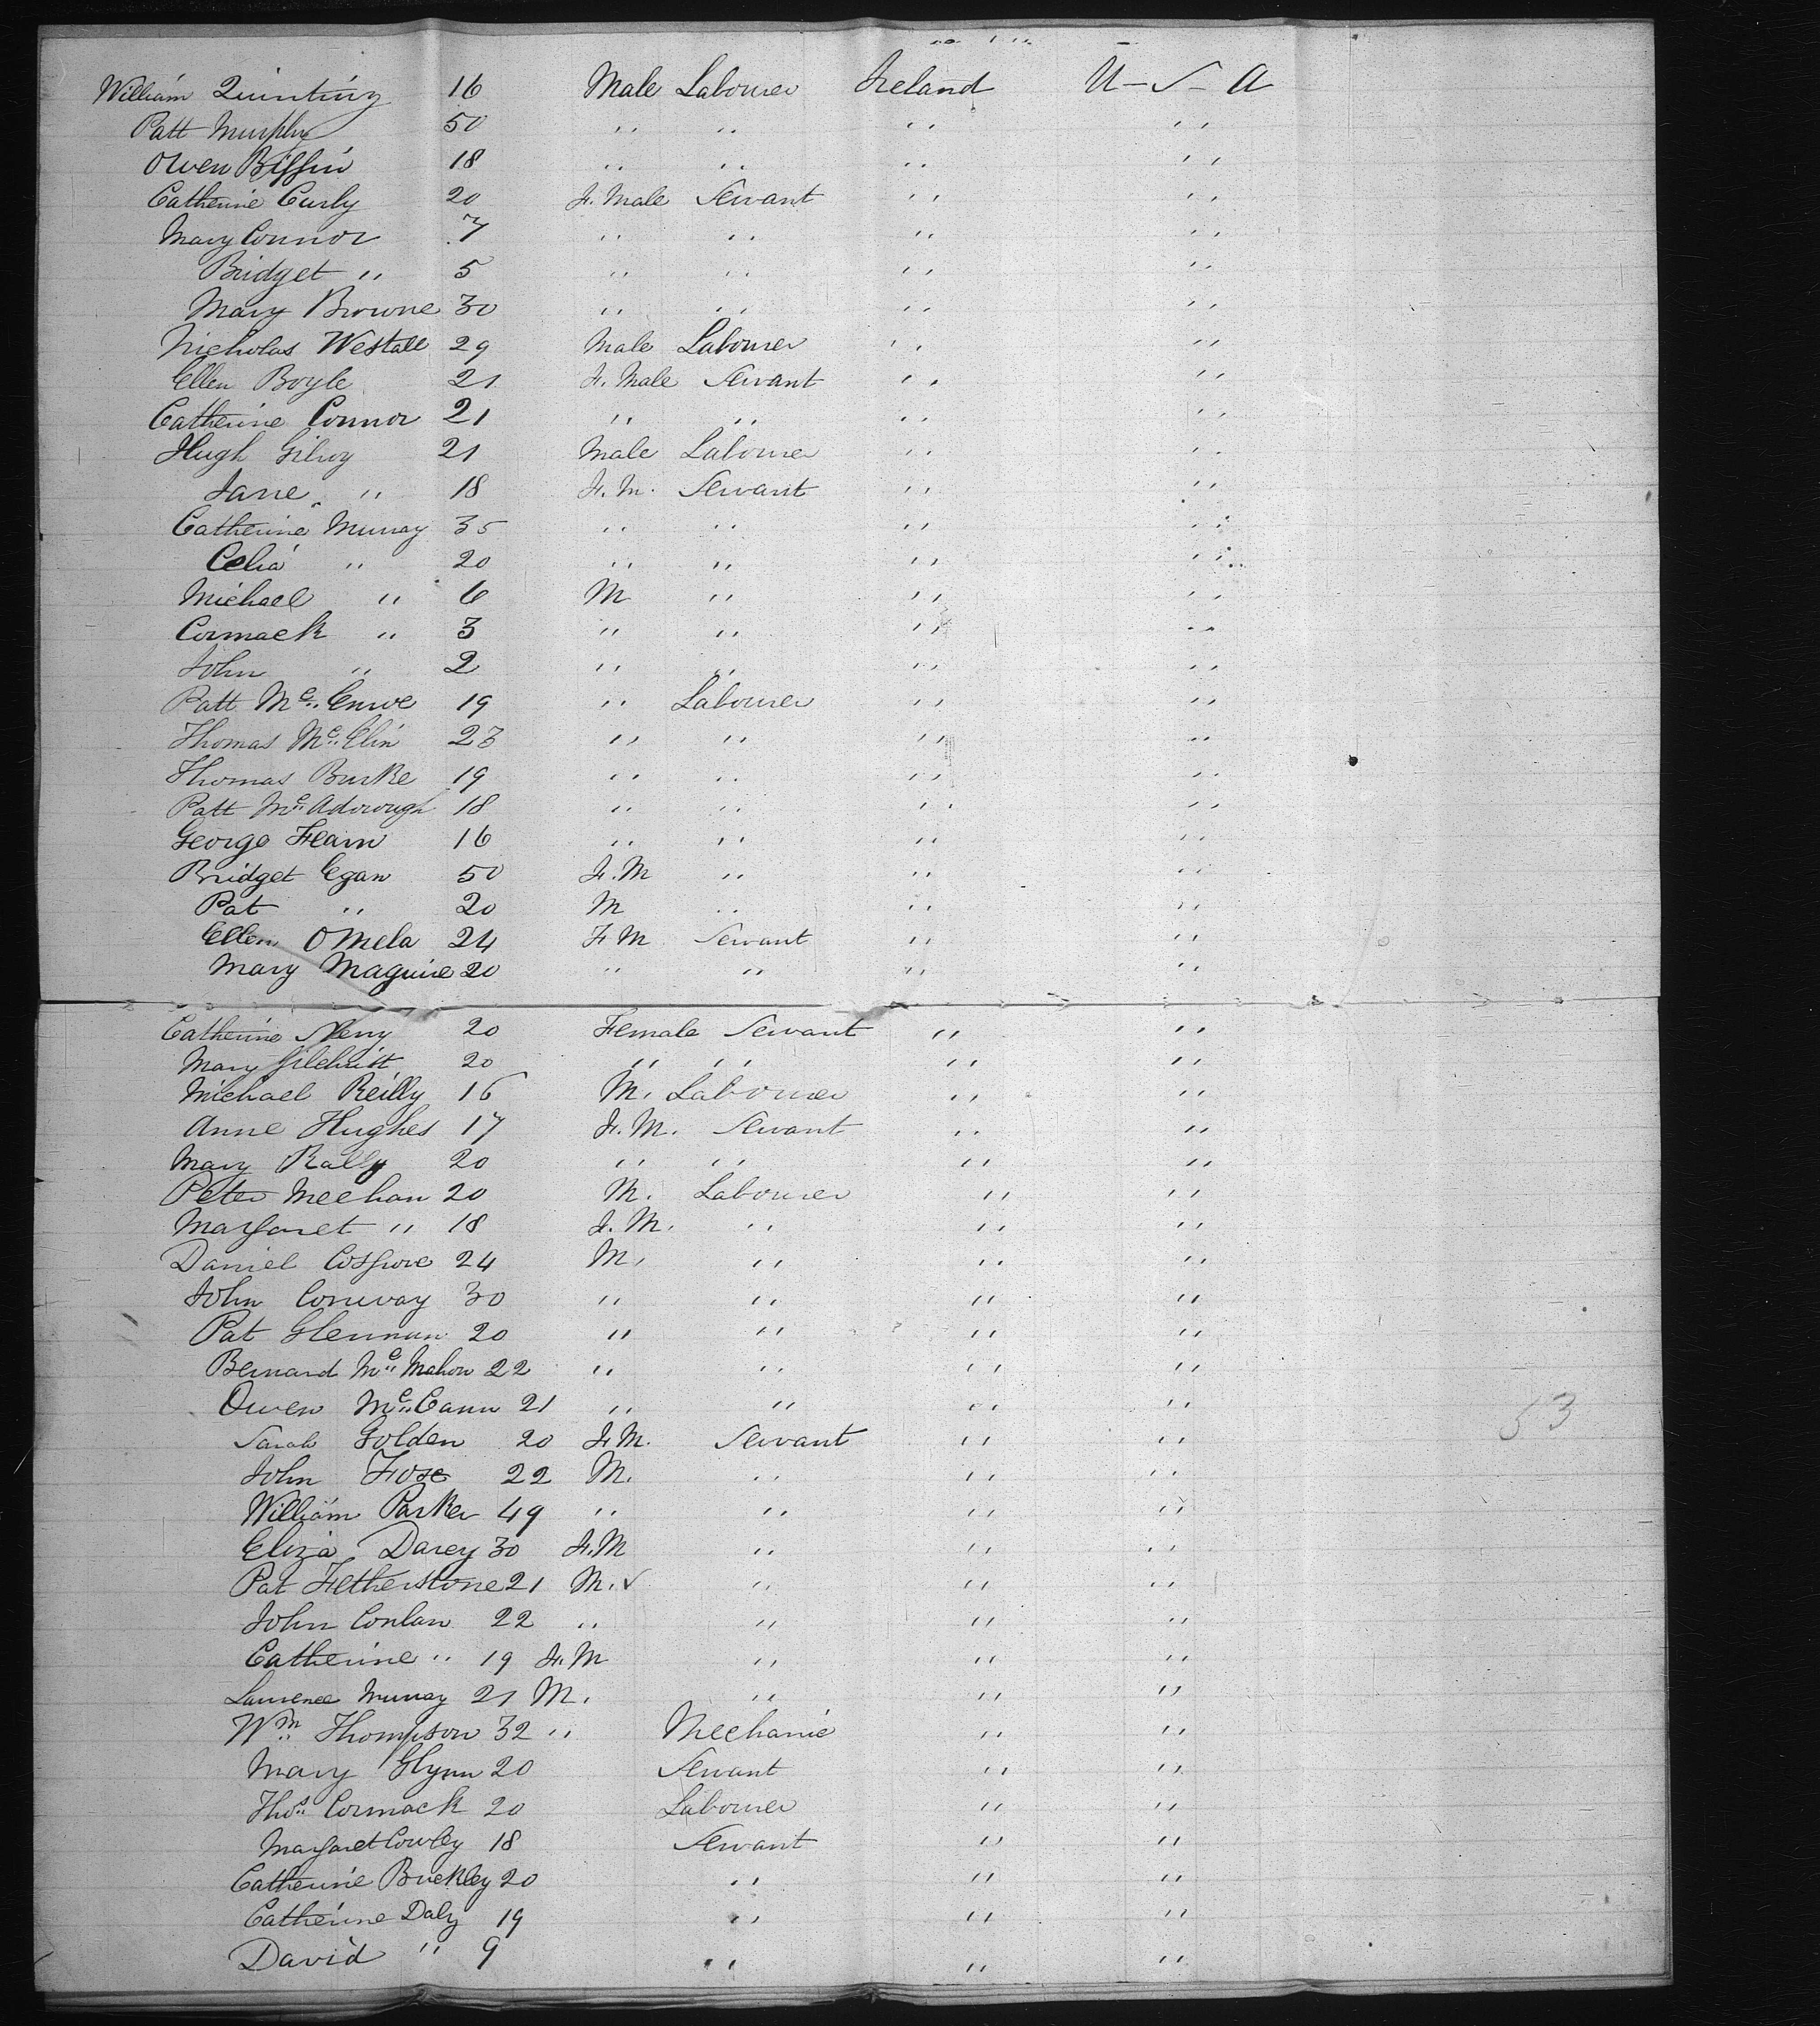 William Quinting 16 Male Labourer Ireland U-S-A
Patt Murphy 50 " " " "
Owen Biffin 18 " " " "
Catherine Curly 20 F. Male Servant " "
Mary Connor 7 " " " "
Bridget " 5 " " " "
Mary Browne 30 " " " "
Nicholas Westall 29 Male Labourer " "
Ellen Boyle 21 F. Male Servant " "
Catherine Connor 21 " " " "
Hugh Gilroy 21 Male Labourer " "
Jane " 18 F. M. Servant " "
Catherine Murray 35 " " " "
Celia " 20 " " " "
Michael " 6 M " " "
Cormack " 3 " " " "
John " 2 " " " "
Patt Mc 19 " Labourer " "
Thomas Mc Elin 23 " " " "
Thomas Burke 19 " " " "
Patt Mc Adorough 18 " " " "
George Fearn 16 " " " "
Bridget Egan 50 F. M " " "
Pat " 20 M " " "
Ellen O Mela 24 F M Servant " "
Mary Maguire 20 " " " "
Catherine 20 Female Servant " "
Mary Gilchrist 20 " " " "
Michael Reilly 16 M. Labourer " "
Anne Hughes 17 F. M. Servant " "
Mary Rally 20 " " " "
Peter Meehan 20 M. Labourer " "
Margaret " 18 F. M. " " "
Daniel Cosgrove 24 M. " " "
John Conway 30 " " " "
Pat Glennan 20 " " " "
Bernard Mc Mahon 22 " " " "
Owen Mc Cann 21 " " " "
Sarah Golden 20 F. M. Servant " "
John Fox 22 M. " " "
William Parker 49 " " " "
Eliza Darcy 30 F. M " " "
Pat Fetherstone 21 M. " " "
John Conlan 22 " " " "
Catherine " 19 F. M " " "
Laurence Murray 21 M. " " "
Wm Thompson 32 " Mechanic " "
Mary Glynn 20 Servant " "
Thos Cormack 20 Labourer " "
Margaret Cowley 18 Servant " "
Catherine Buckley 20 " " "
Catherine Daly 19 " " "
David " 9 " " "
53